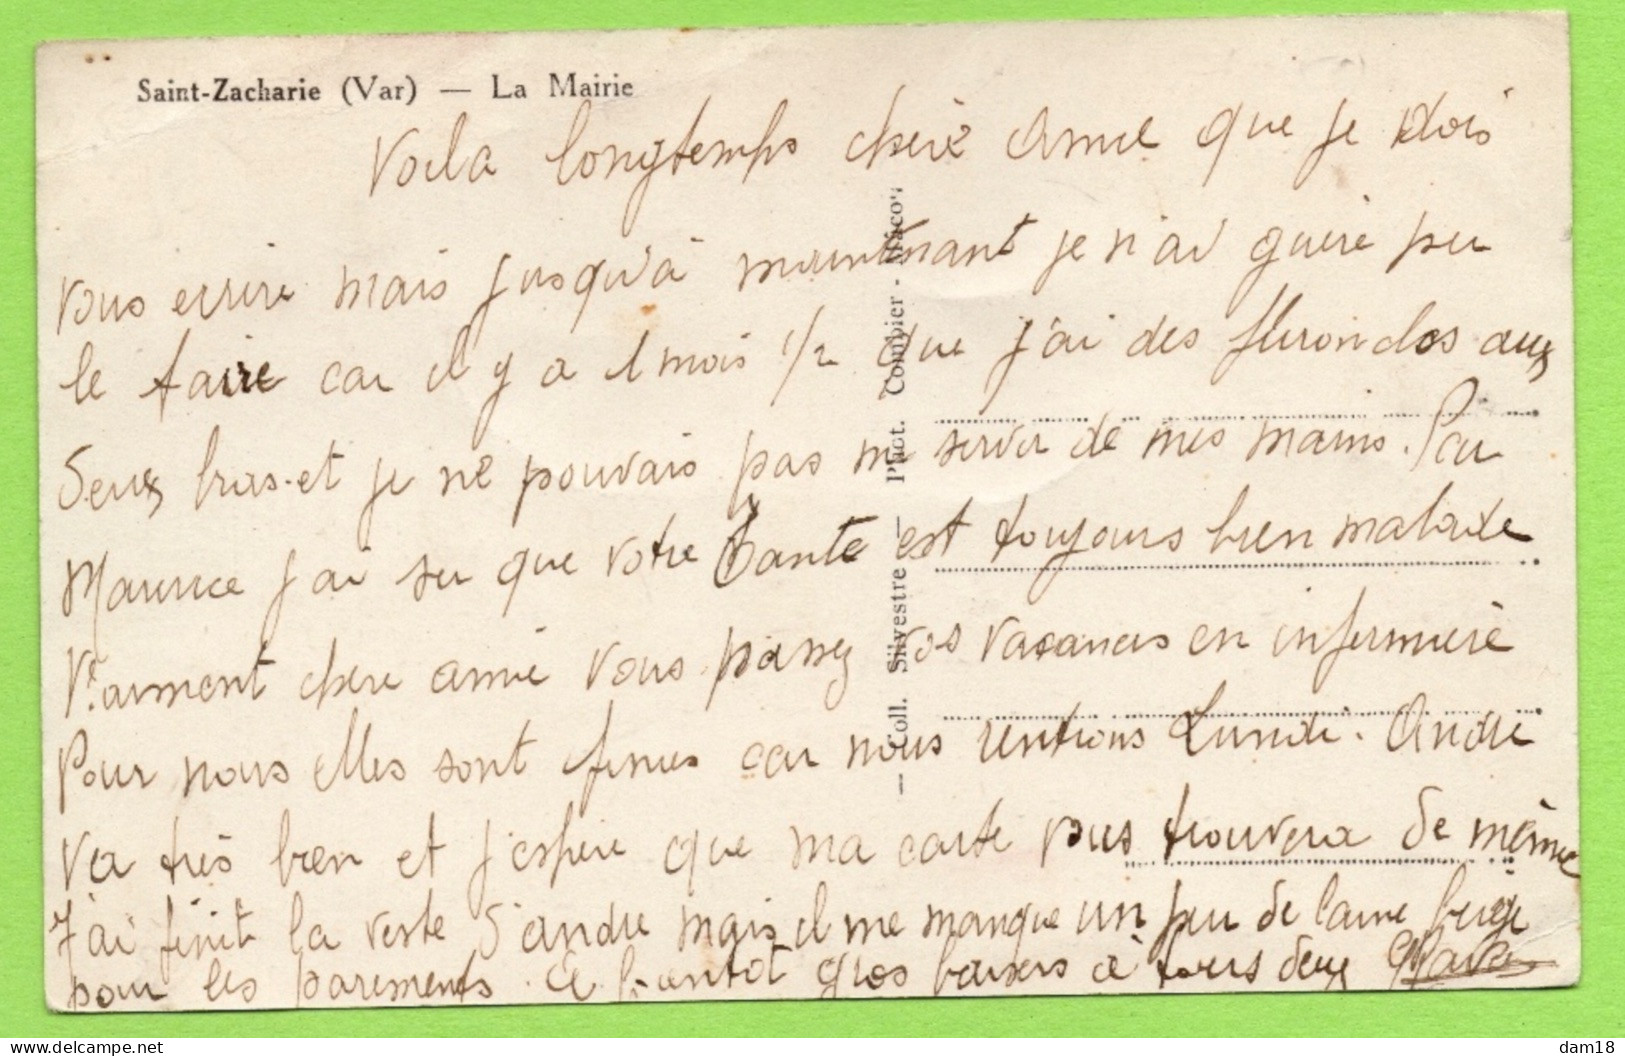 Saint-Zacharie (Var) — La Mairie
Voila longtemps chère Amie que je dois
vous ecrire mais jusqu'à maintenant je n'ai guère pu
le faire car il y a 1 mois 1/2 que j'ai des flironclos aux
Deux bras et je ne pouvais pas me servir de mes mains. Par
Maurice j'ai su que votre Tante est toujours bien malade
Vraiment chère amie vous passez vos vacances en infirmière
Pour nous elles sont finies car nous rentrons Lundi. André
va très bien et j'espère que ma carte vous trouvera de même
J'ai finit la veste d'andre mais il me manque un peu de laine beige
pour les parements. A bientôt gros baisers à tous deux
— Coll. Silvestre — Phot. Combier - Mâcon
delcampe.net
dam18